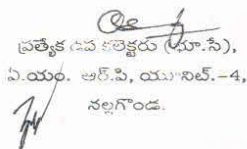 ప్రత్యేక ఉప కలెక్టరు (భూ.సే),
ఏ.యం. ఆర్.పి, యు నిట్.-4,
నల్లగొండ.